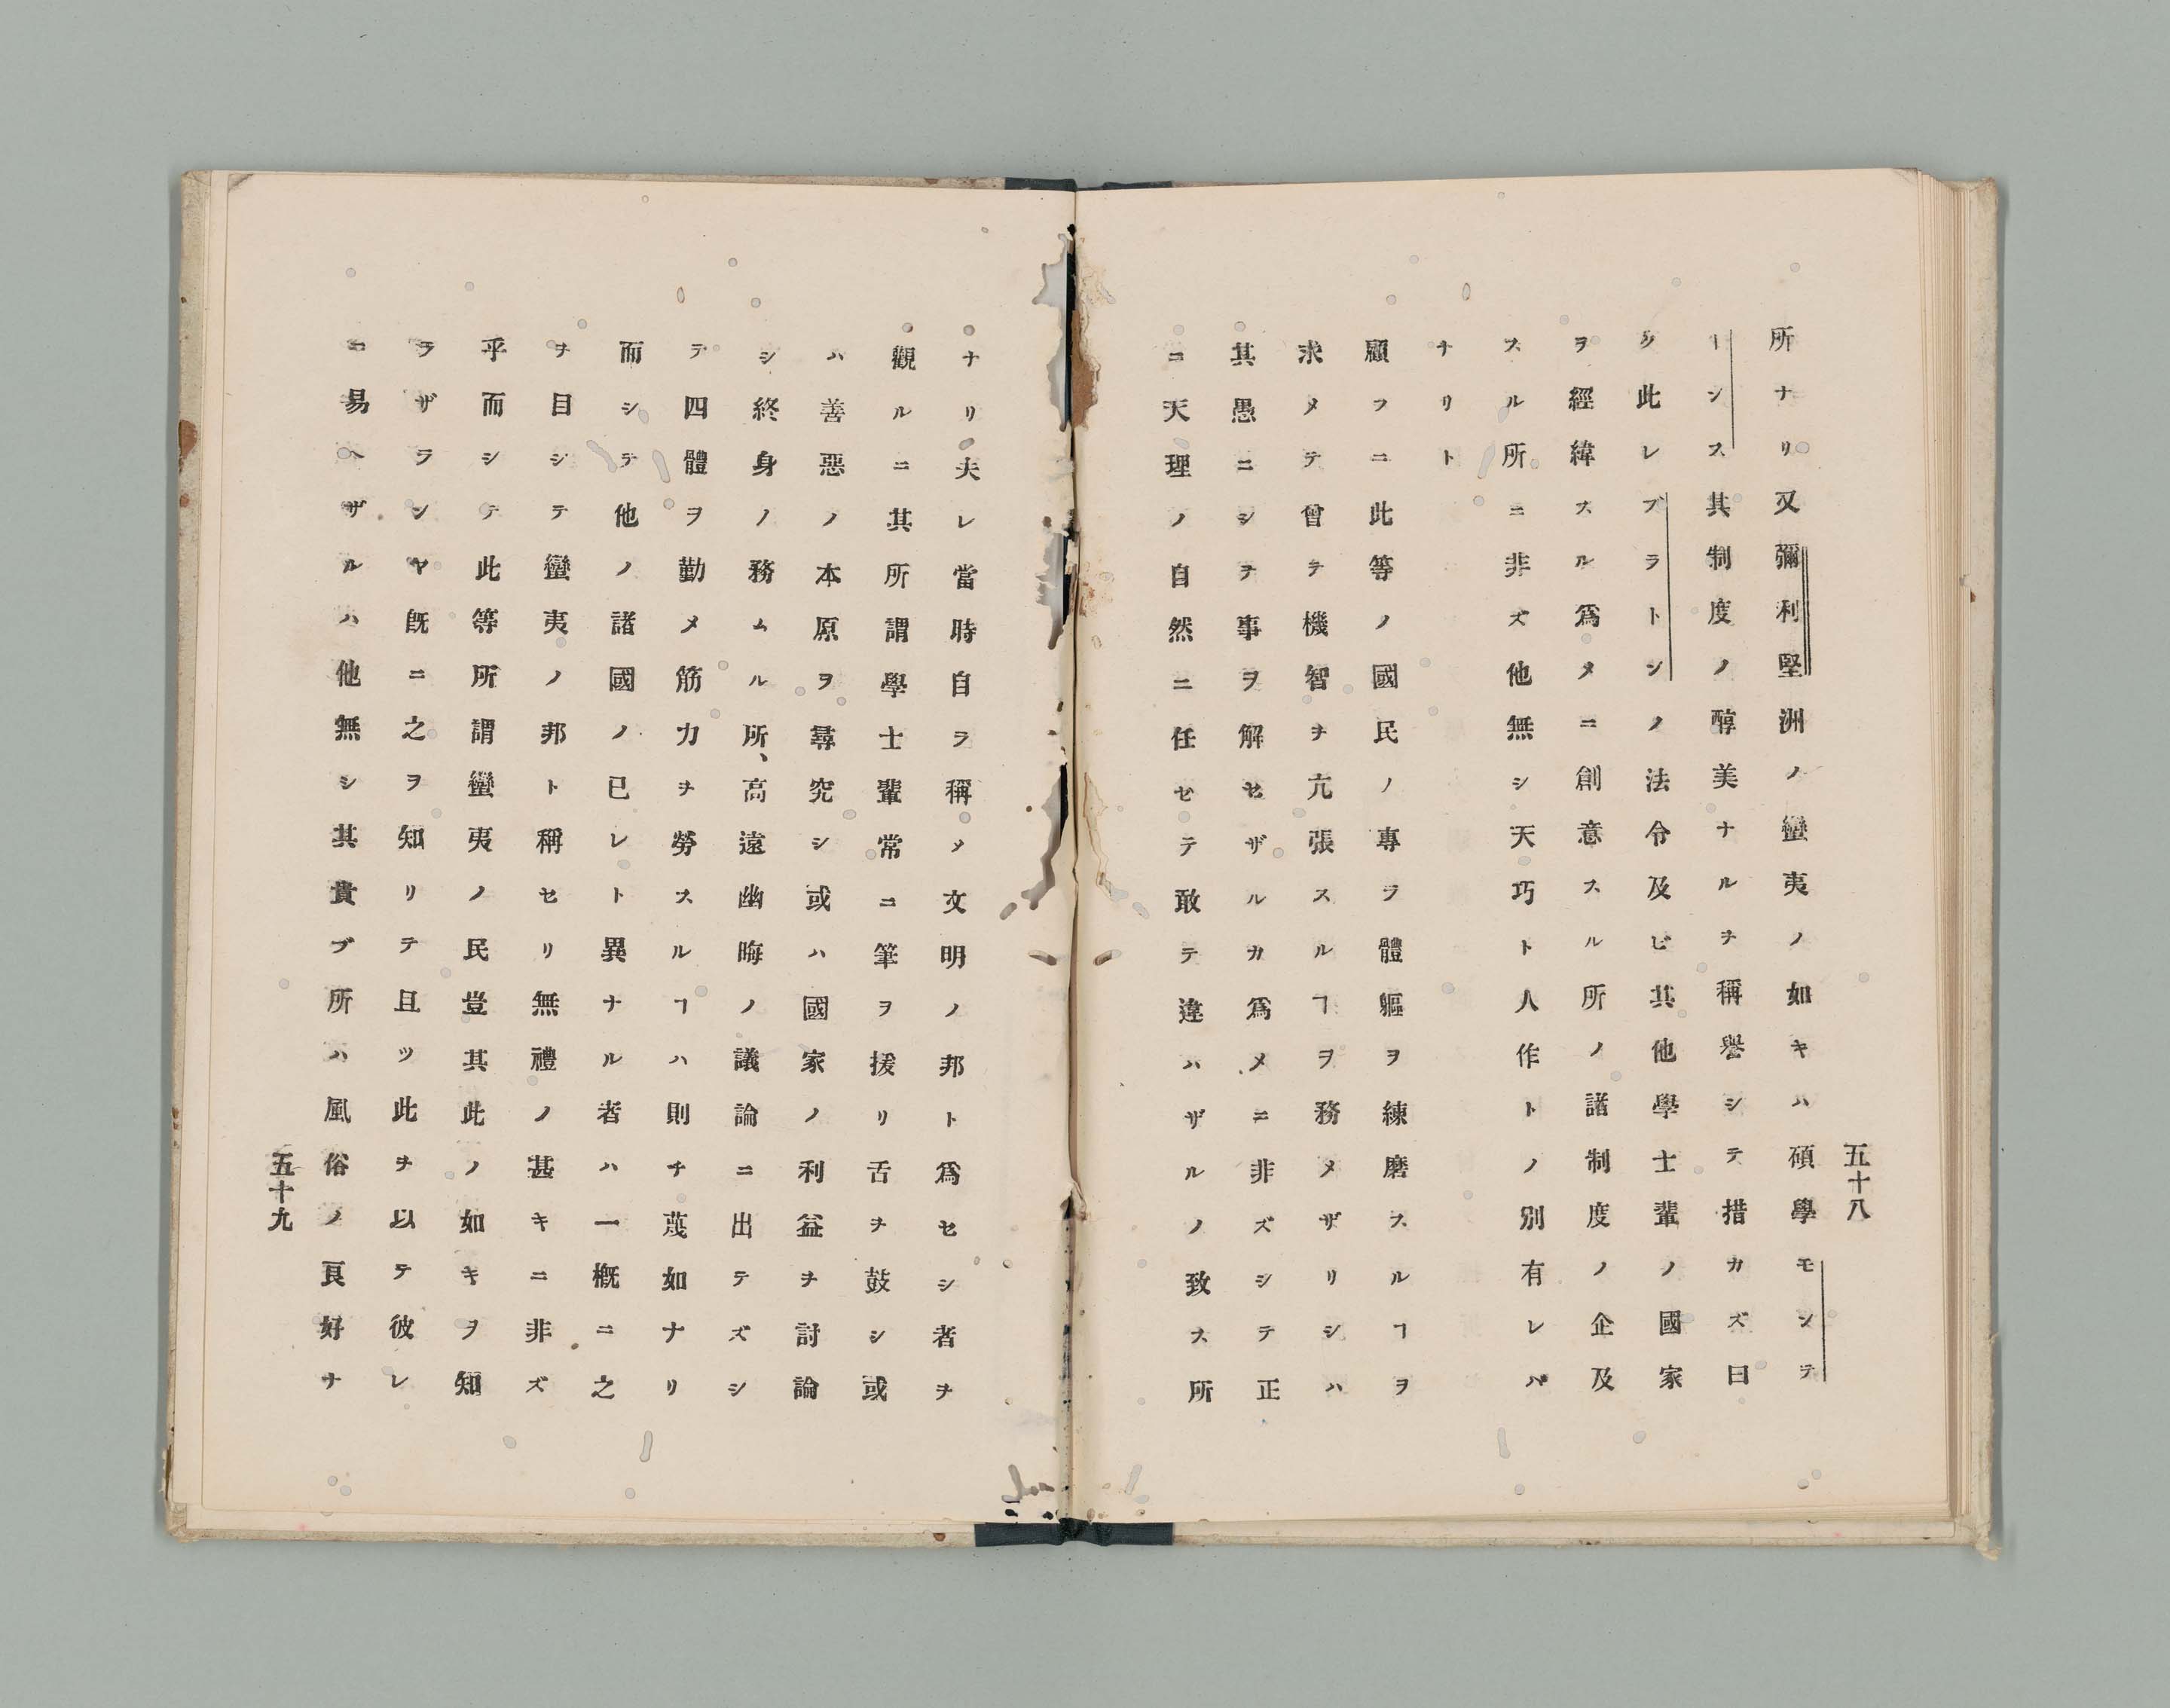 五十八
所ナリ又彌利堅洲ノ蠻夷ノ如キハ碩學モンテ
ーンス其制度ノ醇美ナルヲ稱譽シテ措カズ曰
ク此レプラトンノ法令及ビ其他學士輩ノ國家
ヲ經緯スル爲メニ創意スル所ノ諸制度ノ企及
スル所ニ非ズ他無シ天巧ト人作トノ別有レバ
ナリト
顧フニ此等ノ國民ノ專ラ體軀ヲ練磨スルヿヲ
求メテ曾テ機智ヲ亢張スルヿヲ務メザリシハ
其愚ニシヲ事ヲ解セザルカ爲メニ非ズシテ正
ニ天理ノ自然ニ任ゼテ敢テ違ハザルノ致ス所
ナリ夫レ當時自ラ稱メ文明ノ邦ト爲セシ者ヲ
觀ルニ其所謂學士輩常ニ筆ヲ援リ舌ヲ鼓シ或
ハ善惡ノ本原ヲ尋究シ或ハ國家ノ利益ヲ討論
シ終身ノ務ムル所、高遠幽晦ノ議論ニ出テズシ
テ四體ヲ勤メ筋力ヲ勞スルヿハ則チ蔑如ナリ
而シテ他ノ諸國ノ已レト異ナル者ハ一概ニ之
ヲ目シテ蠻夷ノ邦ト稱セリ無禮ノ甚キニ非ズ
乎而シテ此等所謂蠻夷ノ民豈其此ノ如キヲ知
ラザランヤ既ニ之ヲ知リテ且ツ此ヲ以テ彼レ
ニ易ヘザルハ他無シ其貴ブ所ハ風俗ノ良好ナ
五十九